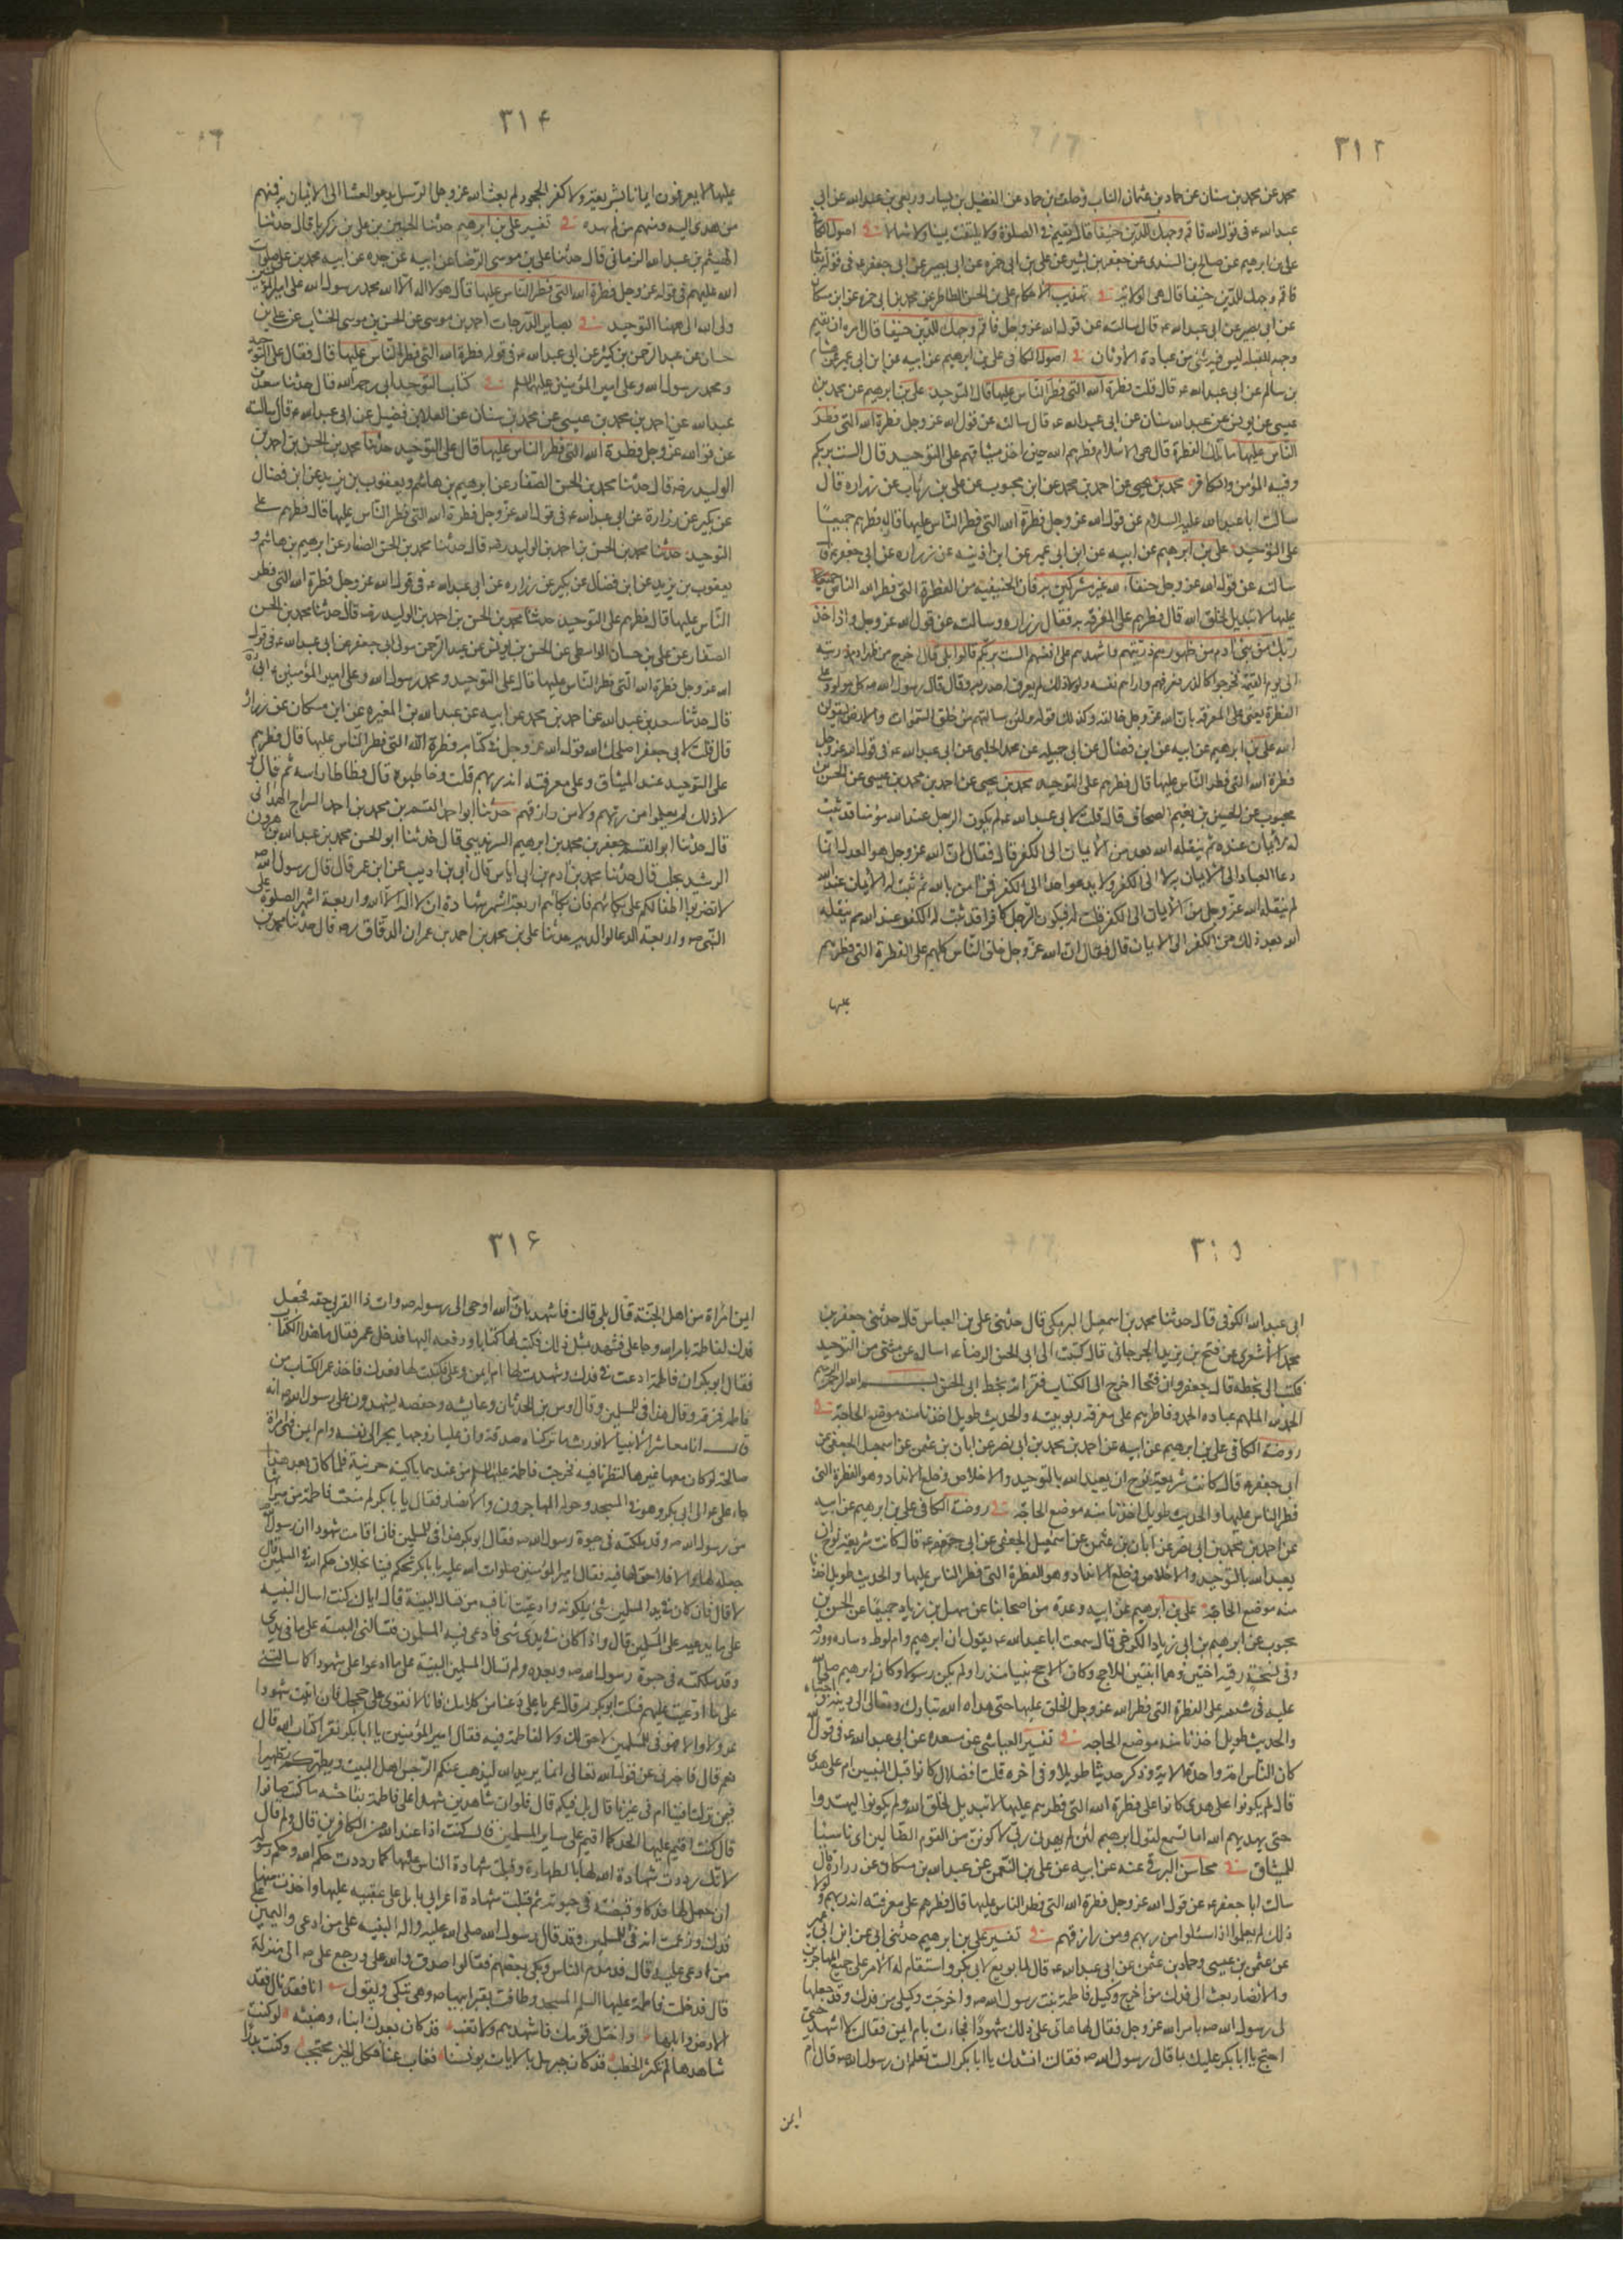 ٣١٢
محمد عن محمد بن سنان عن حماد بن عثمان الناب وخلف بن حماد عن الفضيل بن يسار وربعى بن عبد الله عن ابى
عبد الله ع فى قول الله فاقم وجهك للدين حنيفا قال يقيم فى الصلوة ولا يلتفت يمينا ولا شمالا فى اصول الكافى
على بن ابرهيم عن صالح بن السندى عن جعفر بن بشير عن على بن ابى حمزه عن ابى بصير عن ابى جعفر ع فى قوله تعالى
فاقم وجهك للدين حنيفا قال هى الولاية فى تهذيب الاحكام على بن الحسن الطاطرى عن محمد بن ابى حمزه عن ابن مسكان
عن ابى بصير عن ابى عبد الله ع قال سالته عن قول الله عز وجل فاقم وجهك للدين حنيفا قال امره ان يقيم
وجهه للقبلة ليس فيه شئ من عبادة الأوثان فى اصول الكافى على بن ابرهيم عن ابيه عن ابن ابى عمير عن هشام
بن سالم عن ابى عبد الله ع قال قلت فطرة الله التى فطر الناس عليها قال التوحيد على بن ابرهيم عن محمد بن
عيسى عن يونس عن عبد الله سنان عن ابى عبد الله ع قال سالته عن قول الله عز وجل فطرة الله التى فطر
الناس عليها ما تلك الفطرة قال هى الاسلام فطرهم الله حين اخذ ميثاقهم على التوحيد قال الست بربكم
وفيه المؤمن والكافر محمد بن يحيى عن احمد بن محمد عن ابن محبوب عن على بن رئاب عن زراره قال
سالت ابا عبد الله عليه السلام عن قول الله عز وجل فطرة الله التى فطر الناس عليها قال فطرهم جميعا
على التوحيد على بن ابرهيم عن ابيه عن ابن ابى عمير عن ابن اذينه عن زراره عن ابى جعفر ع قال
سالته عن قول الله عز وجل حنفاء لله غير مشركين به قال الحنيفيه من الفطرة التى فطر الله الناس
عليها لا تبديل لخلق الله قال فطرهم على المعرفة به فقال زراره وسالته عن قول الله عز وجل واذ اخذ
ربك من بنى ادم من ظهورهم ذريتهم واشهدهم على انفسهم الست بربكم قالوا بلى قال اخرج من ظهر ادم ذريته
الى يوم القيمة فخرجوا كالذر فعرفهم واراهم نفسه ولولا ذلك لم يعرف احد ربه وقال قال رسول الله ص كل مولود يولد على
الفطرة يعنى على المعرفة بان الله عز وجل خالقه وكذلك قوله ولئن سالتهم من خلق السموات والارض ليقولن
الله على بن ابرهيم عن ابيه عن ابن فضال عن ابى جميله عن محمد الحلبى عن ابى عبد الله ع فى قول الله عز وجل
فطرة الله التى فطر الناس عليها قال فطرهم على التوحيد محمد بن يحيى عن احمد بن محمد بن عيسى عن الحسن بن
محبوب عن الحسين بن نعيم الصحاف قال قلت لابى عبد الله ع لم يكون الرجل عند الله مؤمنا قد ثبت
له الأيمان عنده ثم ينقله الله بعد من الأيمان الى الكفر قال فقال ان الله عز وجل هو العدل انما
دعا العباد الى الايمان به لا الى الكفر ولا يدعو احدا الى الكفر فمن امن بالله ثم ثبت له الأيمان عند الله
لم ينقله الله عز وجل من الأيمان الى الكفر قلت له فيكون الرجل كافرا قد ثبت له الكفر عند الله ثم ينقله
الله بعد ذلك من الكفر الى الايمان قال فقال ان الله عز وجل خلق الناس كلهم على الفطرة التى فطرهم
عليها
٣١۴
عليها لا يعرفون ايمانا بشريعة ولا كفر الجحود ثم بعث الله عز وجل الرسل يدعو العباد الى الايمان به فمنهم
من هدى اليه ومنهم من لم يهده فى تفسير على بن ابرهيم حدثنا الحسين بن على بن زكريا قال حدثنا
الهيثم بن عبد الله الرمانى قال حدثنا على بن موسى الرضا عن ابيه عن جده عن ابيه محمد بن على صلوات
الله عليهم فى قوله عز وجل فطرة الله التى فطر الناس عليها قال هو لا اله الا الله محمد رسول الله على امير المؤمنين
ولى الله الى ههنا التوحيد فى بصاير الدرجات احمد بن موسى عن الحسن بن موسى الخشاب عن على بن
حسان عن عبد الرحمن بن كثير عن ابى عبد الله ع فى قوله فطرة الله التى فطر الناس عليها قال فقال على التوحيد
ومحمد رسول الله وعلى امير المؤمنين عليهما السلم فى كتاب التوحيد ابى رحمه الله قال حدثنا سعد بن
عبد الله عن احمد بن محمد بن عيسى عن محمد بن سنان عن العلا بن فضيل عن ابى عبد الله ع قال سالته
عن قول الله عز وجل فطرة الله التى فطر الناس عليها قال على التوحيد حدثنا محمد بن الحسن بن احمد بن
الوليد رضه قال حدثنا محمد بن الحسن الصفار عن ابرهيم بن هاشم ويعقوب بن يزيد عن ابن فضال
عن بكير عن زرارة عن ابى عبد الله ع فى قول الله عز وجل فطرة الله التى فطر الناس عليها قال فطرهم على
التوحيد حدثنا محمد بن الحسن بن احمد بن الوليد رضه قال حدثنا محمد بن الحسن الصفار عن ابرهيم بن هاشم و
يعقوب بن يزيد عن ابن فضال عن بكير عن زراره عن ابى عبد الله ع فى قول الله عز وجل فطرة الله التى فطر
الناس عليها قال فطرهم على التوحيد حدثنا محمد بن الحسن بن احمد بن الوليد رضه قال حدثنا محمد بن الحسن
الصفار عن على بن حسان الواسطى عن الحسن بن يونس عن عبد الرحمن مولى ابى جعفر عن ابى عبد الله ع فى قول
الله عز وجل فطرة الله التى فطر الناس عليها قال على التوحيد ومحمد رسول الله وعلى امير المؤمنين ع ابى ره
قال حدثنا سعد بن عبد الله عن احمد بن محمد عن ابيه عن عبد الله بن المغيره عن ابن مسكان عن زراره
قال قلت لابى جعفر اصلحك الله قول الله عز وجل فى كتابه فطرة الله التى فطر الناس عليها قال فطرهم
على التوحيد عند الميثاق وعلى معرفته انه ربهم قلت وخاطبوه قال فطاطا راسه ثم قال لو
لا ذلك لم يعلموا من ربهم ولا من رازقهم حدثنا ابو احمد القسم بن محمد بن احمد السراج الهمدانى
قال حدثنا ابو القسم جعفر بن محمد بن ابرهيم السرنديبى قال حدثنا ابو الحسن محمد بن عبد الله بن هرون
الرشيد بحلب قال حدثنا محمد بن ادم بن ابى اياس قال ابن ابى ذيب عن ابن عمر قال قال رسول الله ص
لا تضربوا اطفالكم على بكائهم فان بكائهم اربعة اشهر شهادة ان لا اله الا الله واربعة اشهر الصلوة على
النبى ص واربعة الدعا لوالديه حدثنا على بن محمد بن احمد بن عمران الدقاق ره قال حدثنا محمد بن
٣١۵
ابى عبد الله الكوفى قال حدثنا محمد بن اسمعيل البرمكى قال حدثنى على بن العباس قال حدثنى جعفر بن
محمد الأشعرى عن فتح بن يزيد الجرجانى قال كتبت الى ابى الحسن الرضا ع اساله عن شئ من التوحيد
فكتب الى بخطه قال جعفر وان فتحا اخرج الى الكتاب فقراته بخط ابى الحسن ع بسم الله الرحمن الرحيم
الحمد لله الملهم عباده الحمد وفاطرهم على معرفة ربوبيته والحديث طويل اخذنا منه موضع الحاجة فى
روضة الكافى على بن ابرهيم عن ابيه عن احمد بن محمد بن ابى نصر عن ابان بن عثمن عن اسمعيل الجعفى عن
ابى جعفر ع قال كانت شريعة نوح ان يعبد الله بالتوحيد والاخلاص وخلع الانداد وهو الفطرة التى
فطر الناس عليها والحديث طويل اخذنا منه موضع الحاجة فى روضة الكافى على بن ابرهيم عن ابيه
عن احمد بن محمد بن ابى نصر عن ابان بن عثمن عن اسمعيل الجعفى عن ابى جعفر ع قال كانت شريعة نوح ان
يعبد الله بالتوحيد والاخلاص وخلع الانداد وهو الفطرة التى فطر الناس عليها والحديث طويل اخذنا
منه موضع الحاجة على بن ابرهيم عن ابيه وعدة من اصحابنا عن سهل بن زياد جميعا عن الحسن بن
محبوب عن ابرهيم بن ابى زياد الكرخى قال سمعت ابا عبد الله ع يقول ان ابرهيم وام لوط وساره وورقه
وفى نسخة رقيه اختين وهما ابنتين للاحج وكان الاحج نبيا منذرا ولم يكن رسولا وكان ابرهيم صلى الله
عليه فى شبيبته على الفطرة التى فطر الله عز وجل الخلق عليها حتى هداه الله تبارك وتعالى الى دينه واجتباه
والحديث طويل اخذنا منه موضع الحاجة فى تفسير العياشى عن مسعده عن ابى عبد الله ع فى قول الله
كان الناس امة واحدة الاية وذكر حديثا طويلا وفى اخره قلت افضلال كانوا قبل النبيين ام على هدى
قال لم يكونوا على هدى كانوا على فطرة الله التى فطرهم عليها لا تبديل لخلق الله ولم يكونوا ليهتدوا
حتى يهديهم الله اما تسمع لقول ابرهيم لئن لم يهدنى ربى لاكونن من القوم الضالين اى ناسيا
للميثاق فى محاسن البرقى عنه عن ابيه عن على بن النعمن عن عبد الله بن مسكان عن زرارة قال
سالت ابا جعفر ع عن قول الله عز وجل فطرة الله التى فطر الناس عليها قال فطرهم على معرفته انه ربهم ولولا
ذلك لم يعلموا اذا سئلوا من ربهم ومن رازقهم فى تفسير على بن ابرهيم حدثنى ابى عن ابن ابى عمير
عن عثمن بن عيسى وحماد بن عثمن عن ابى عبد الله ع قال لما بويع لابى بكر واستقام له الأمر على جميع المهاجرين
والانصار بعث الى فدك من اخرج وكيل فاطمة بنت رسول الله ص واخرجت وكيلى من فدك وقد جعلها
لى رسول الله ص بامر الله عز وجل فقال لها هاتى على ذلك شهودا فجاءت بام ايمن فقالت لا اشهد حتى
احتج يا ابا بكر عليك بما قال رسول الله ص فقالت انشدك يا ابا بكر الست تعلم ان رسول الله ص قال ام
ايمن
٣١۶
ايمن امراة من اهل الجنة فقال بلى قالت فاشهد بان الله اوحى الى رسوله ص وات ذا القربى حقه فجعل
فدك لفاطمة بامر الله وجا على فشهد بمثل ذلك فكتب لها كتابا ودفعه اليها فدخل عمر فقال ما هذا الكتاب
فقال ابو بكر ان فاطمة ادعت فى فدك وشهدت لها ام ايمن وعلى فكتبت لها بفدك فاخذ عمر الكتاب من
فاطمه فمزقه وقال هذا فئ للمسلمين وقال اوس بن الحدثان وعايشه وحفصه يشهدون على رسول الله ص انه
قال انا معاشر الأنبيا لا نورث ما تركناه صدقة وان عليا زوجها يجر الى نفسه وام ايمن فهى امراة
صالحة لو كان معها غيرها لنظرنا فيه فخرجت فاطمة عليها السلم من عندهما باكية حزينة فلما كان بعد هذا
جاء على ع الى ابى بكر وهو فى المسجد وحوله المهاجرون والأنصار فقال يا ابا بكر لم منعت فاطمة من ميراثها
من رسول الله ص وقد ملكته فى حيوة رسول الله ص فقال ابو بكر هذا فئ للمسلمين فان اقامت شهودا ان رسول الله ص
جعله لها والا فلا حق لها فيه فقال امير المؤمنين صلوات الله عليه يا ابا بكر تحكم فينا بخلاف حكم الله فى المسلمين قال
لا قال فان كان فى يد المسلمين شئ يملكونه وادعيت انا فيه من تسال البينة قال اياك كنت اسال البينه
على ما تدعيه على المسلمين قال واذا كان فى يدى شئ فادعى فيه المسلمون فتسالنى البينة على ما فى يدى
وقد ملكته فى حيوة رسول الله ص وبعده ولم تسال المسلمين البينة على ما ادعوا على شهودا كما سالتنى
على ما ادعيت عليهم فسكت ابو بكر ثم قال عمر يا على دعنا من كلامك فانا لا نقوى على حججك فان اتيت شهودا
عدولا والا فهو فئ للمسلمين لا حق لك ولا لفاطمة فيه فقال امير المؤمنين يا ابا بكر تقرا كتاب الله قال
نعم قال فاخبرنى عن قول الله تعالى انما يريد الله ليذهب عنكم الرجس اهل البيت ويطهركم تطهيرا
فيمن نزلت افينا ام فى غيرنا قال بل فيكم قال فلو ان شاهدين شهدا على فاطمة بفاحشه ما كنت صانعا
قال كنت اقيم عليها الحد كما اقيم على ساير المسلمين قال كنت اذا عند الله من الكافرين قال ولم قال
لانك رددت شهادة الله لها بالطهارة وقبلت شهادة الناس عليها كما رددت حكم الله وحكم رسوله
ان جعل لها فدكا وقبضته فى حيوته ثم قبلت شهادة اعرابى بايل على عقبيه عليها واخذت منها
فدك وزعمت انه فئ للمسلمين وقد قال رسول الله صلى الله عليه واله البينه على من ادعى واليمين على
من ادعى عليه قال فدمدم الناس وبكى بعضهم فقالوا صدق والله على ورجع على ع الى منزله
قال فدخلت فاطمة عليها السلم المسجد وطافت بقبر ابيها ص وهى تبكى وتقول انا فقدناك فقد
الارض وابلها واختل قومك فاشهدهم ولا تغب قد كان بعدك انباء وهنبثه لو كنت
شاهدها لم تكثر الخطب قد كان جبريل بالايات يونسنا فغاب عنا فكل الخير محتجب وكنت بدرا